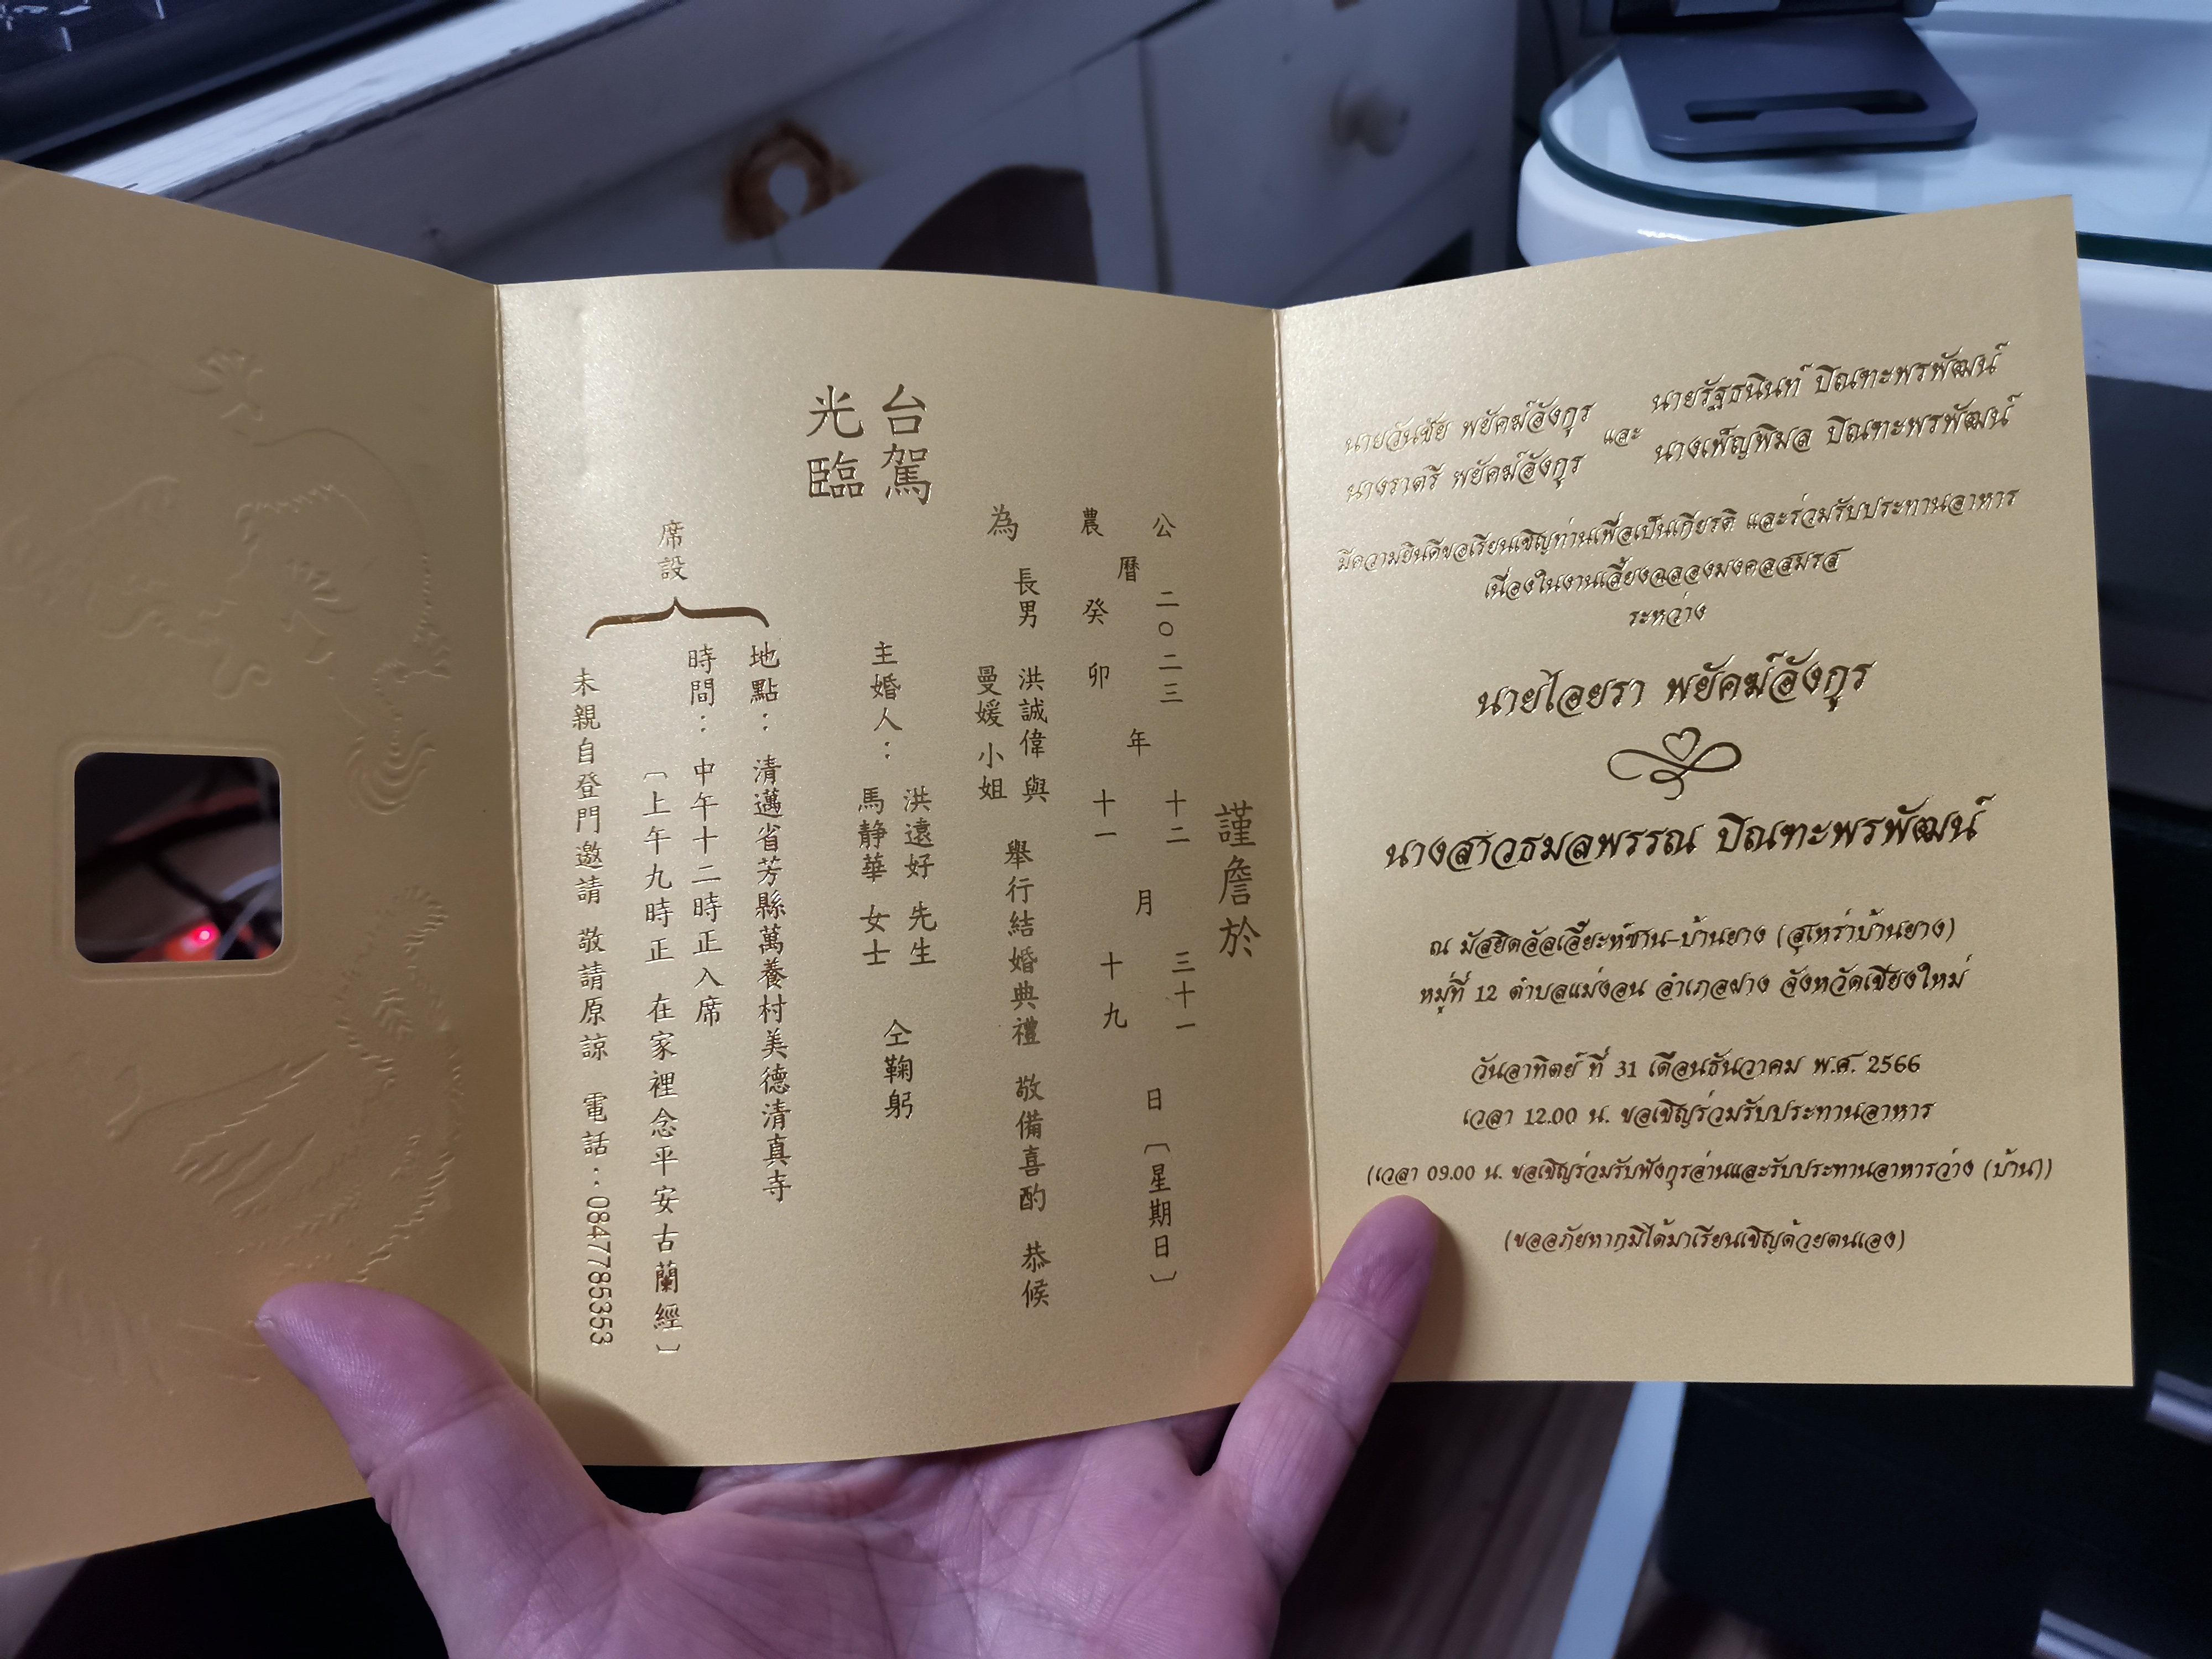 謹詹於
公曆二〇二三年十二月三十一日〔星期日〕
農曆癸卯年十一月十九
為 長男 洪誠偉 與 曼媛 小姐 舉行結婚典禮 敬備喜酌 恭候
台駕
光臨
主婚人： 洪遠好 先生
馬靜華 女士
仝鞠躬
席設
地點：清邁省芳縣萬養村美德清真寺
時間：中午十二時正入席
〔上午九時正 在家裡念平安古蘭經〕
未親自登門邀請 敬請原諒 電話：0847785353
นายวันชัย พยัคฆ์อังกูร
นางราตรี พยัคฆ์อังกูร
และ
นายรัฐธนินท์ ปิณฑะพรพัฒน์
นางเพ็ญพิมล ปิณฑะพรพัฒน์
มีความยินดีขอเรียนเชิญท่านเพื่อเป็นเกียรติ และร่วมรับประทานอาหาร
เนื่องในงานเลี้ยงฉลองมงคลสมรส
ระหว่าง
นายไอยรา พยัคฆ์อังกูร
นางสาวธมลพรรณ ปิณฑะพรพัฒน์
ณ มัสยิดอัลเอี๊ยะห์ซาน-บ้านยาง (สุเหร่าบ้านยาง)
หมู่ที่ 12 ตำบลแม่งอน อำเภอฝาง จังหวัดเชียงใหม่
วันอาทิตย์ ที่ 31 เดือนธันวาคม พ.ศ. 2566
เวลา 12.00 น. ขอเชิญร่วมรับประทานอาหาร
(เวลา 09.00 น. ขอเชิญร่วมรับฟังกุรอ่านและรับประทานอาหารว่าง (บ้าน))
(ขออภัยหากมิได้มาเรียนเชิญด้วยตนเอง)